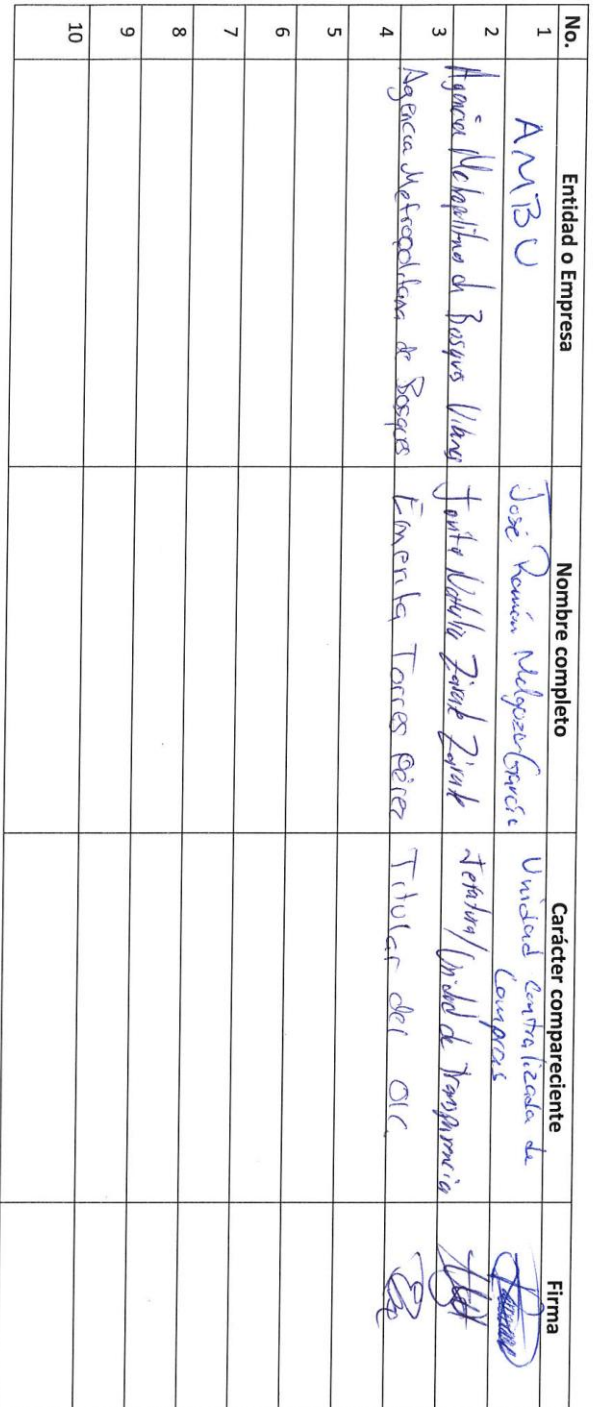 No. Entidad o Empresa Nombre completo Carácter compareciente Firma
1 AMBU José Ramón Melgoza García Unidad Centralizada de
Compras
2
3 Agencia Metropolitana de Bosques Urbanos Zárate Zárate Jefatura/Unidad de Transparencia
4 Agencia Metropolitana de Bosques Emerita Torres Pérez Titular del OIC
5
6
7
8
9
10